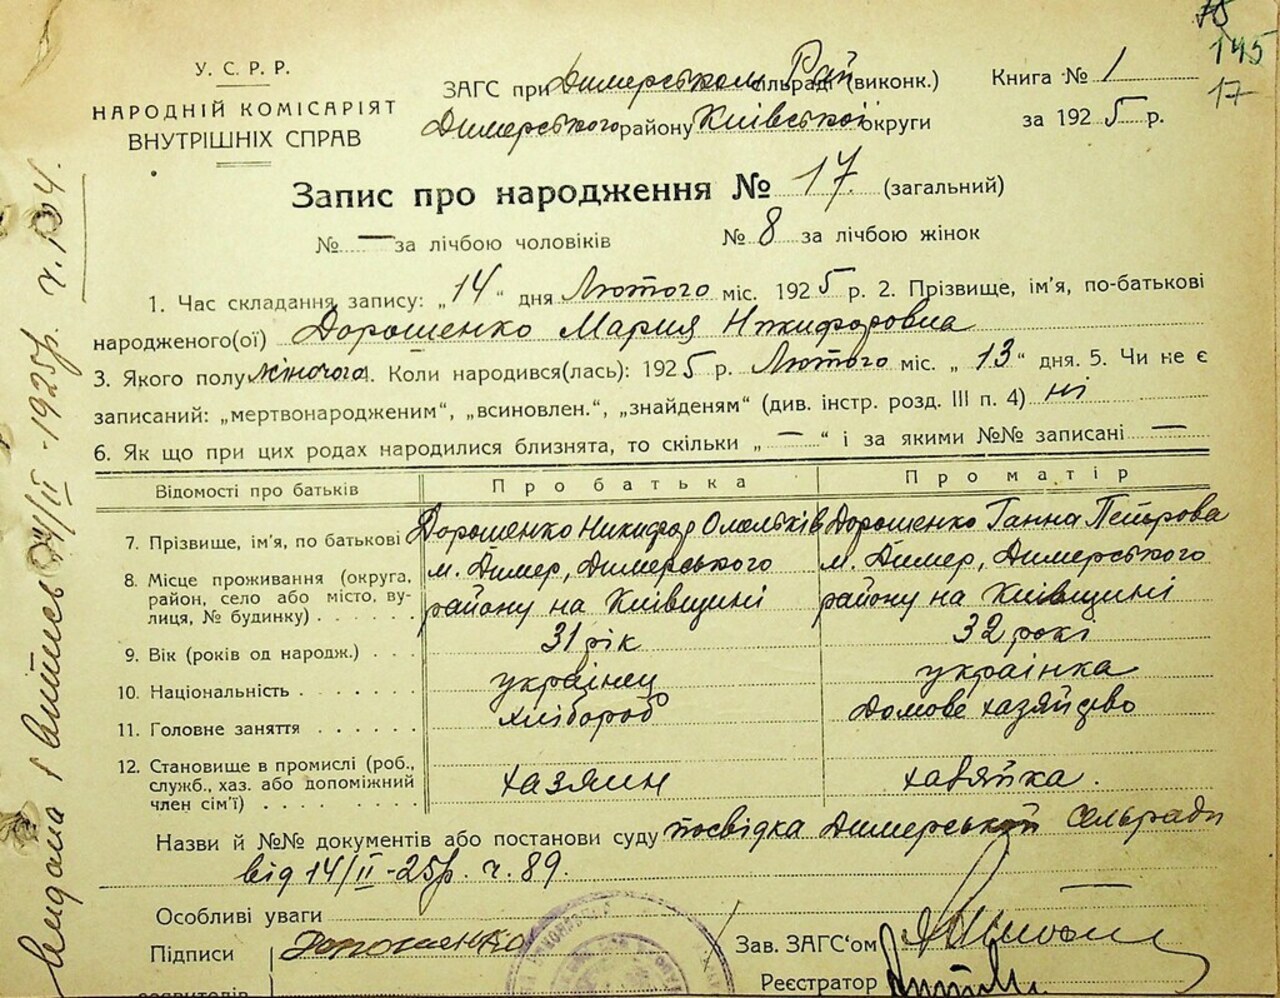 145
17
У. С. Р. Р.
НАРОДНІЙ КОМІСАРІЯТ
ВНУТРІШНІХ СПРАВ
ЗАГС при Димерськом Рай сільраді (виконк.)
Димерського району Київської округи
Книга № 1
за 1925 р.
Запис про народження № 17. (загальний)
№ — за лічбою чоловіків № 8 за лічбою жінок
1. Час складання запису: „14“ дня Лютого міс. 1925 р. 2. Прізвище, ім'я, по-батькові
народженого(ої) Дорошенко Мария Никифоровна
3. Якого полу жіночого 4. Коли народився(лась): 1925 р. Лютого міс. „13“ дня. 5. Чи не є
записаний: „мертвонародженим“, „всиновлен.“, „знайденям“ (див. інстр. розд. III п. 4) ні
6. Як що при цих родах народилися близнята, то скільки „—“ і за якими №№ записані —
Відомості про батьків Про батька Про матір
7. Прізвище, ім'я, по батькові Дорошенко Никифор Омельків Дорошенко Ганна Петрова
8. Місце проживання (округа, м. Димер, Димерського м. Димер, Димерського
район, село або місто, ву- району на Київщині району на Київщині
лиця, № будинку)
9. Вік (років од народж.) 31 рік 32 рокі
10. Національність українец українка
11. Головне заняття хлібороб домове хазяйство
12. Становище в промислі (роб.,
служб., хаз. або допоміжний хазяин хазяйка.
член сім'ї)
Назви й №№ документів або постанови суду посвідка Димерської Сельради
від 14/II-25р. ч. 89.
Особливі уваги
Підписи Дорошенко
заявителів
Зав. ЗАГС'ом
Реєстратор
видана 1 випись 14/II-1925р. ч. 134.